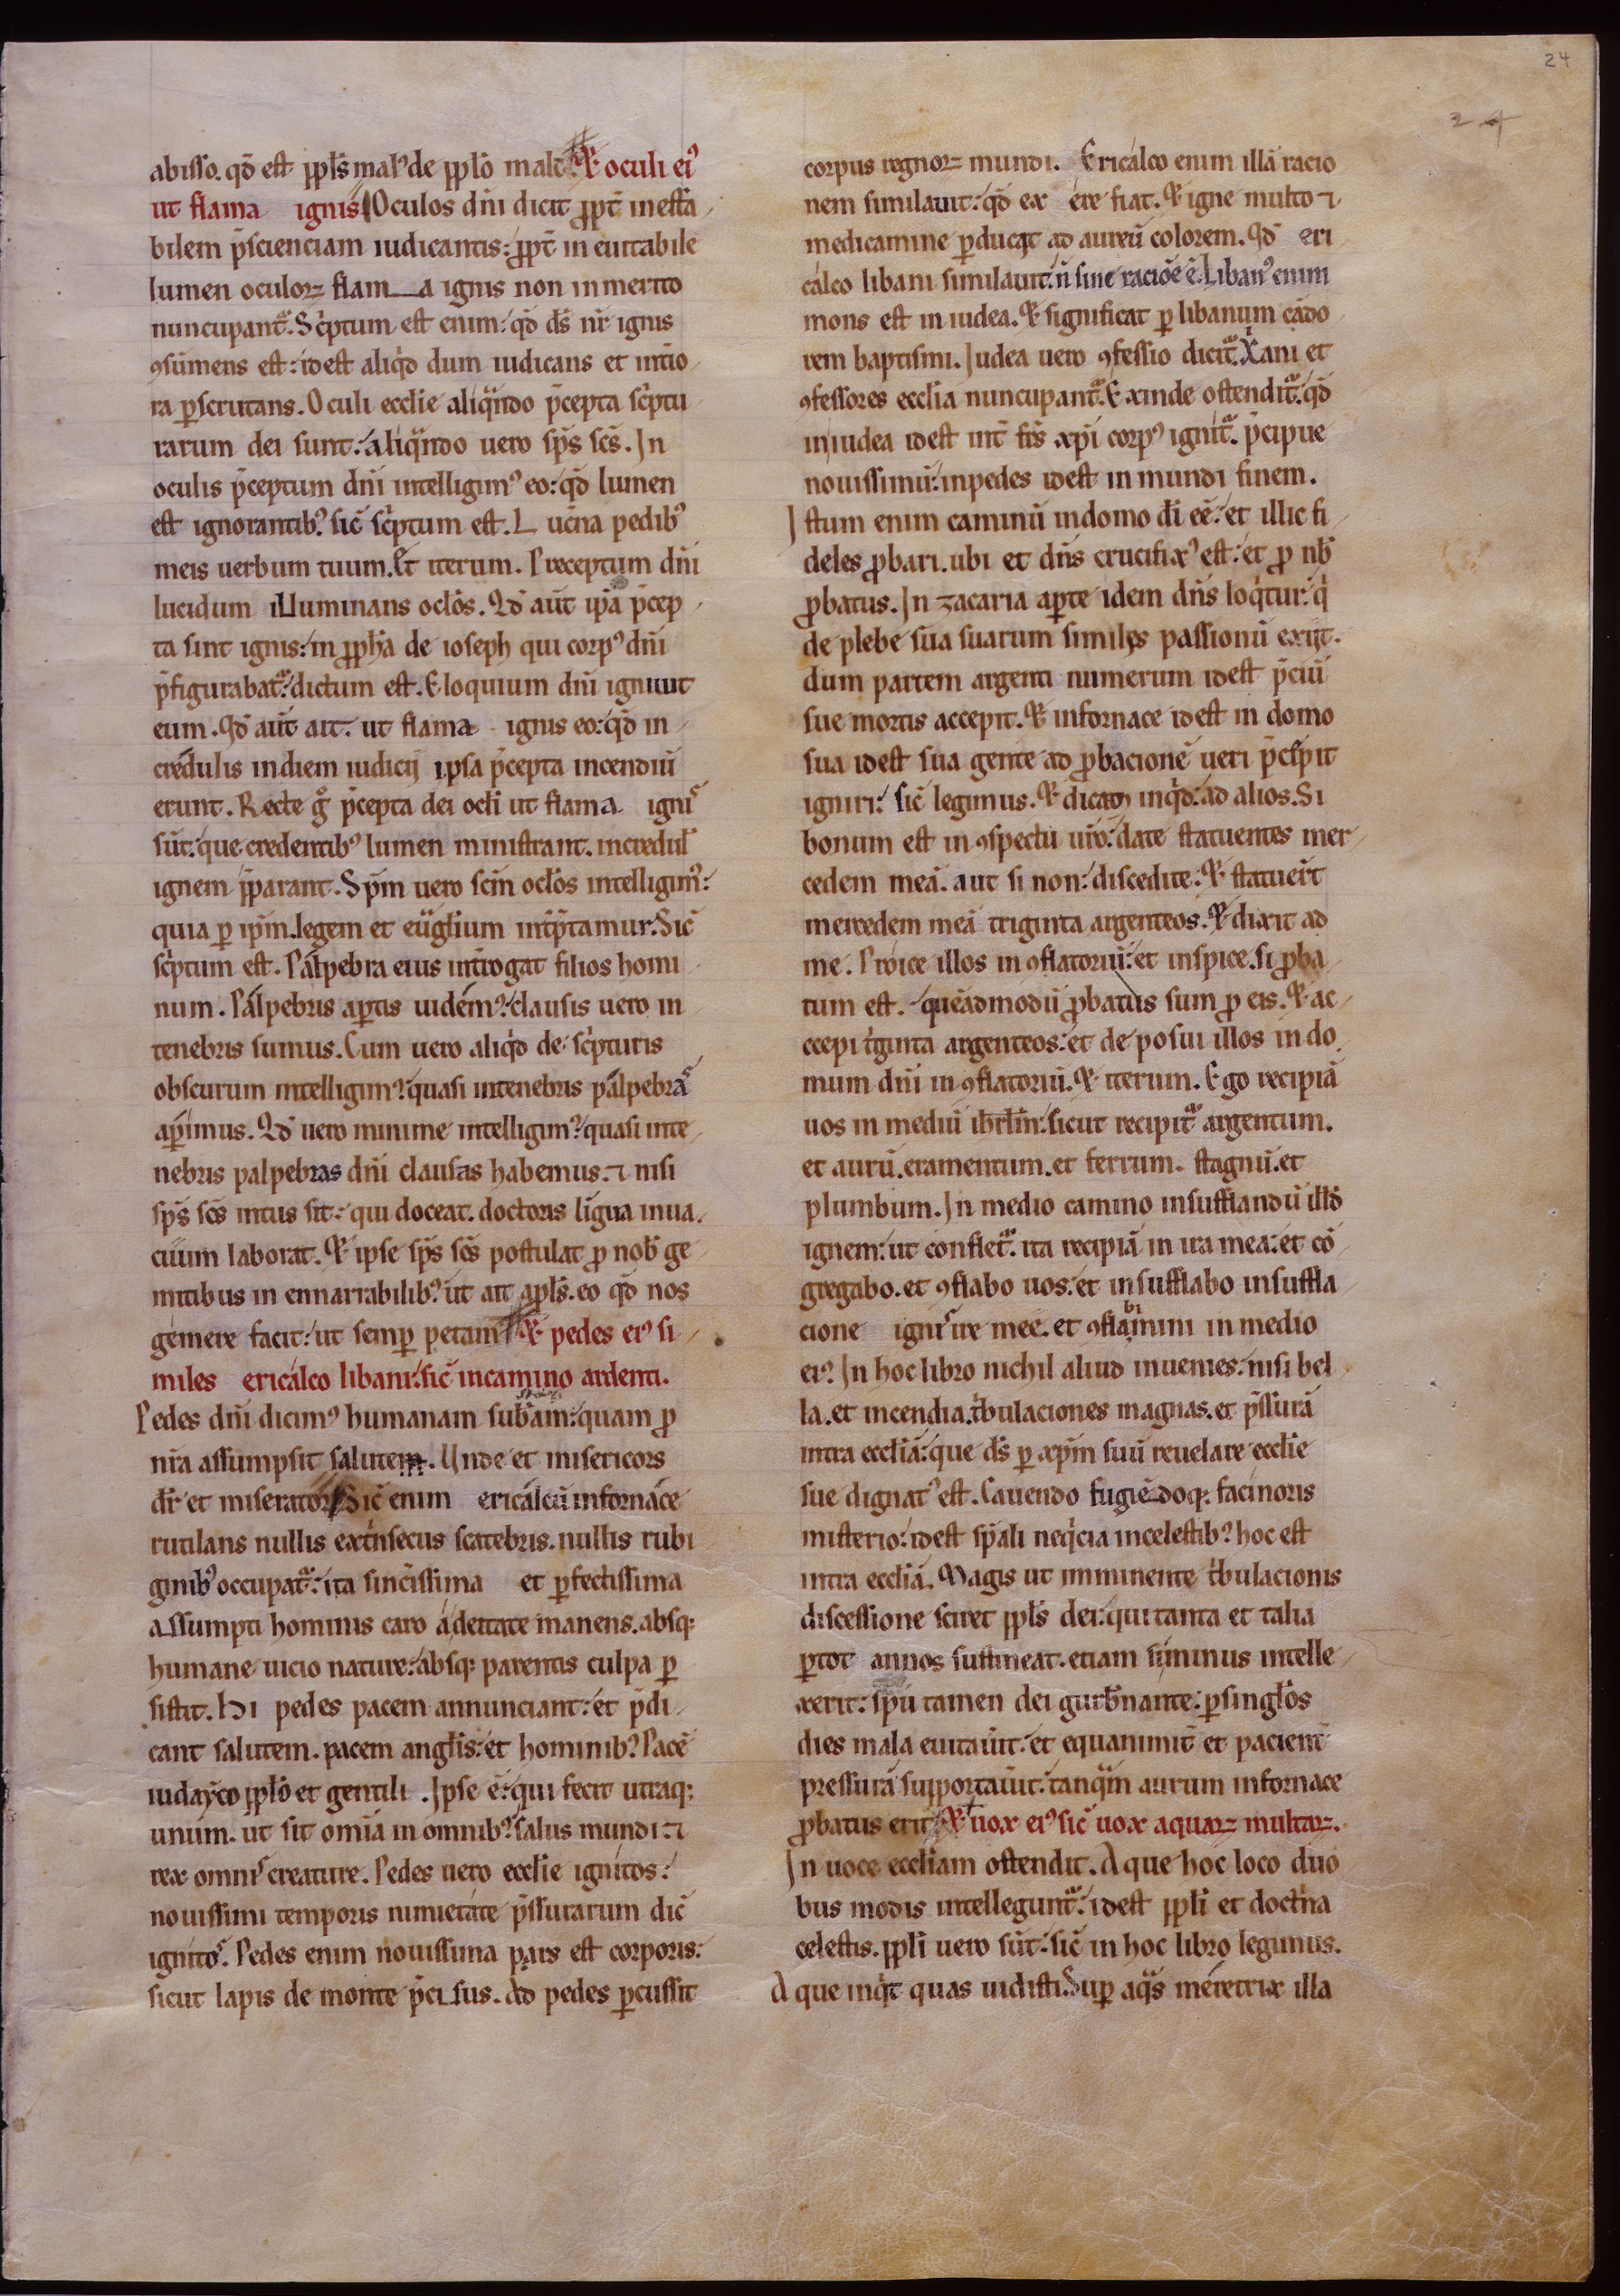 24
24
abisso. qd̄ est ppl̄s mal᾿ de ppl̄o malo. Et oculi ei᾿
ut flama ignis. Oculos dn̄i dicit ꝓpt̄ inesta
bilem p̄scienciam iudicantis: ꝓpt̄ in euitabile
lumen oculoꝝ flam_a ignis non inmerito
nuncupant᾿. Sc̄ptum est enim: qd̄ ds̄ nr̄ ignis
ꝯsumens est: idest aliqd̄ dum iudicans et int̄io
ra ꝑscrutans. Oculi ecclie aliqᵃndo p̄cepta sc̄ptu
rarum dei sunt: aliqᵃndo uero sp̄s sc̄s. In
oculis p̄ceptum dn̄i intelligim᾿ eo: qd̄ lumen
est ignorantib᾿. sic̄ sc̄ptum est. Lucn̄a pedib᾿
meis uerbum tuum. Et iterum. Preceptum dn̄i
lucidum illuminans ocl̄os. Qd̄ aūt ip̄a p̄cep
ta sint ignis: in ꝓph̄a de ioseph qui corp᾿ dn̄i
p̄figurabat᾿: dictum est. Eloquium dn̄i igniuit
eum. Qd̄ aūt ait. ut flama ignis eo: qd̄ in
credulis indiem iudicij ipsa p̄cepta incendiū
erunt. Recte gͦ p̄cepta dei ocl̄i ut flama ignis
sūt: que credentib᾿ lumen ministrant. incredul̄
ignem p̄parant. Sp̄m uero scm̄ ocl̄os intelligim᾿:
quia ꝑ ip̄m. legem et eūglium int̄p̄tamur. Sic̄
sc̄ptum est. Palpebra eius int̄rogat filios homi
num. Palpebris aꝑtis uidem᾿: clausis uero in
tenebris sumus. Cum uero aliqd̄ de sc̄pturis
obscurum intelligim᾿: quasi intenebris palpebras
aꝑimus. Qd̄ uero minime intelligim᾿: quasi inte
nebris palpebras dn̄i clausas habemus. ⁊ nisi
sp̄s sc̄s intus sit: qui doceat. doctoris ligua inua
cuum laborat. Et ipse sp̄s sc̄s postulat ꝓ nob̄ ge
mitibus in ennarrabilib᾿: ut ait apl̄s. eo qd̄ nos
gemere facit: ut semꝑ petam᾿. Et pedes ei᾿ si
miles ericalco libani: sic̄ incamino ardenti.
Pedes dn̄i dicim᾿ humanam subam̄: quam ꝓ
nr̄a assumpsit salutem. Unde et misericors
dr̄ et miserator. Sic̄ enim ericalcū infornace
rutilans nullis ext̄nsecus scatebris. nullis rubi
ginib᾿ occupat᾿: ita sincissima et ꝑfectissima
assumpti hominis caro a deitate manens. absq;
humane uicio nature: absq; parentis culpa ꝑ
sistit. Hi pedes pacem annunciant: et p̄di
cant salutem. pacem angl̄is: et hominib᾿: Pacē
iudayco ppl̄o et gentili. Ipse ē: qui fecit utraq;
unum. ut sit omīa in omnib᾿: salus mundi: ⁊
rex omnis creature. Pedes uero ecclie ignitos:
nouissimi temporis nimietate p̄ssurarum dic̄
ignitos. Pedes enim nouissima pars est corporis:
sicut lapis de monte p̄cisus. Ad pedes ꝑcussit
corpus regnoꝝ mundi. Ericalco enim illā racio
nem similauit: qd̄ ex ere fiat. Et igne multo ⁊
medicamine ꝑducat ad aureū colorem. Qd̄ eri
calco libani similauit: n̄ sine racioē ē. Liban᾿ enim
mons est in iudea. Et significat ꝑ libanum cādo
rem baptismi. Iudea uero ꝯfessio dicit᾿. X̄ani et
ꝯfessores ecclia nuncupant᾿. Exinde ostendit᾿: qd̄
iniudea idest int̄ frs̄ xp̄i corp᾿ ignit᾿. p̄cipue
nouissimū: inpedes idest in mundi finem.
Istum enim caminū indomo dī eē: et illic fi
deles ꝓbari. ubi et dn̄s crucifix᾿ est: et ꝓ nb̄
ꝓbatus. In zacaria aꝑte idem dn̄s loqt̄ur: q̄
de plebe sua suarum similes passionū exijt.
dum partem argenti numerum idest p̄ciū
sue mortis accepit. Et infornace idest in domo
sua idest sua gente ad ꝓbacionē ueri p̄cipit
igniri: sic̄ legimus. Et dicam inqd̄: ad alios. Si
bonum est in ꝯspectu uro̅: date statuentes mer
cedem meā. aut si non: discedite: Et statuert̄
mercedem meā triginta argenteos. Et dixit ad
me. Proice illos in ꝯflatoriū: et inspice. si ꝓba
tum est. queādmodū ꝓbatus sum ꝓ eis. Et ac
ccepi tginta argenteos: et de posui illos in do
mum dn̄i in ꝯflatoriū. Et iterum. Ego recipiā
uos in mediū ihrl̄m: sicut recipit᾿ argentum.
et aurū. eramentum. et ferrum. stagnū. et
plumbum. In medio camino insufflandū illo
ignem: ut conflet᾿. ita recipiā in ira mea: et cō
gregabo. et ꝯflabo uos: et insufflabo insuffla
cione ignis ire mee. et ꝯflabimini in medio
ei᾿. In hoc libro nichil aliud inuenies: nisi bel
la. et incendia. tbulaciones magnas. et p̄ssurā
intra eccliā: que ds̄ ꝑ xp̄m suū reuelare ecclie
sue dignat᾿ est. Cauendo fugiēdoq; facinoris
misterio: idest sp̄ali neqcia incelestib᾿: hoc est
intra eccliā. Magis ut imminente tbulacionis
discessione sciret ppl̄s dei: qui tanta et talia
ꝑtot annos sustineat. etiam siminus intelle
xerit: sp̄u tamen dei gub̄nante: ꝑsingl̄os
dies mala euitaūt: et equanimit̄ et pacient̄
pressurā supportauīt: tanqᵃm aurum infornace
ꝓbatus erit. Et uox ei᾿ sic̄ uox aquaꝝ multaꝝ.
In uoce eccliam ostendit. Aque hoc loco duo
bus modis intellegunt᾿: idest ppl̄i et doctna
celestis. ppl̄i uero sūt: sic̄ in hoc libro legimus.
Aque inqt̄ quas uidisti. Suꝑ aqᵃs meretrix illa